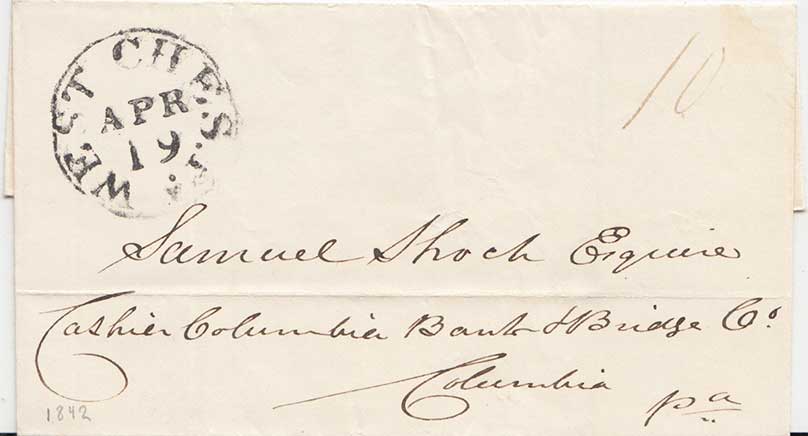 WEST CHES
APR
19
10
Samuel Shoch Esquire
Cashier Columbia Bank & Bridge Co.
Columbia
pa
1842